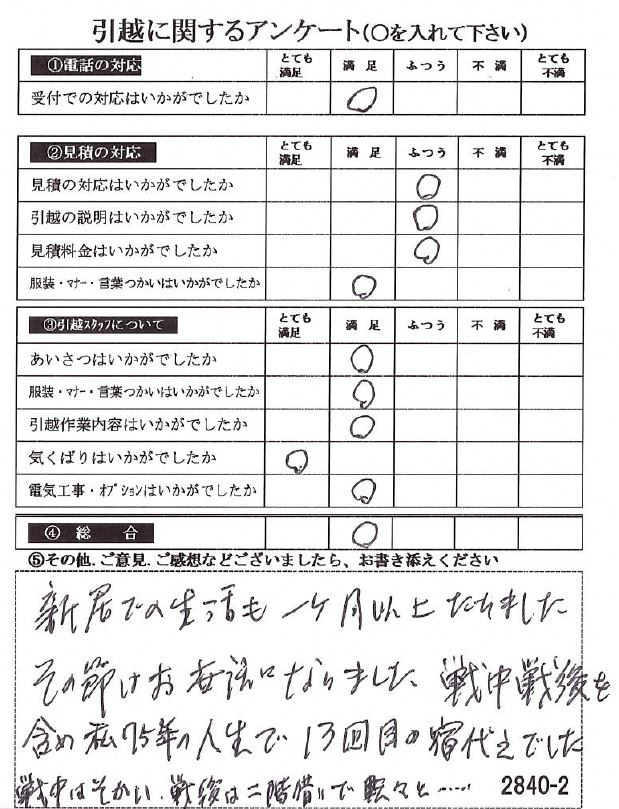 引越に関するアンケート(○を入れて下さい)
①電話の対応 とても満足 満足 ふつう 不満 とても不満
受付での対応はいかがでしたか ○
②見積の対応 とても満足 満足 ふつう 不満 とても不満
見積の対応はいかがでしたか ○
引越の説明はいかがでしたか ○
見積料金はいかがでしたか ○
服装・マナー・言葉つかいはいかがでしたか ○
③引越スタッフについて とても満足 満足 ふつう 不満 とても不満
あいさつはいかがでしたか ○
服装・マナー・言葉つかいはいかがでしたか ○
引越作業内容はいかがでしたか ○
気くばりはいかがでしたか ○
電気工事・オプションはいかがでしたか ○
④総合 ○
⑤その他.ご意見.ご感想などございましたら、お書き添えください
新居での生活も一ケ月以上たちました
その節はお世話になりました、戦中戦後を
含め私75年の人生で13回目の宿代えでした
戦中はそかい、戦後は二階借りで転々と……
2840-2